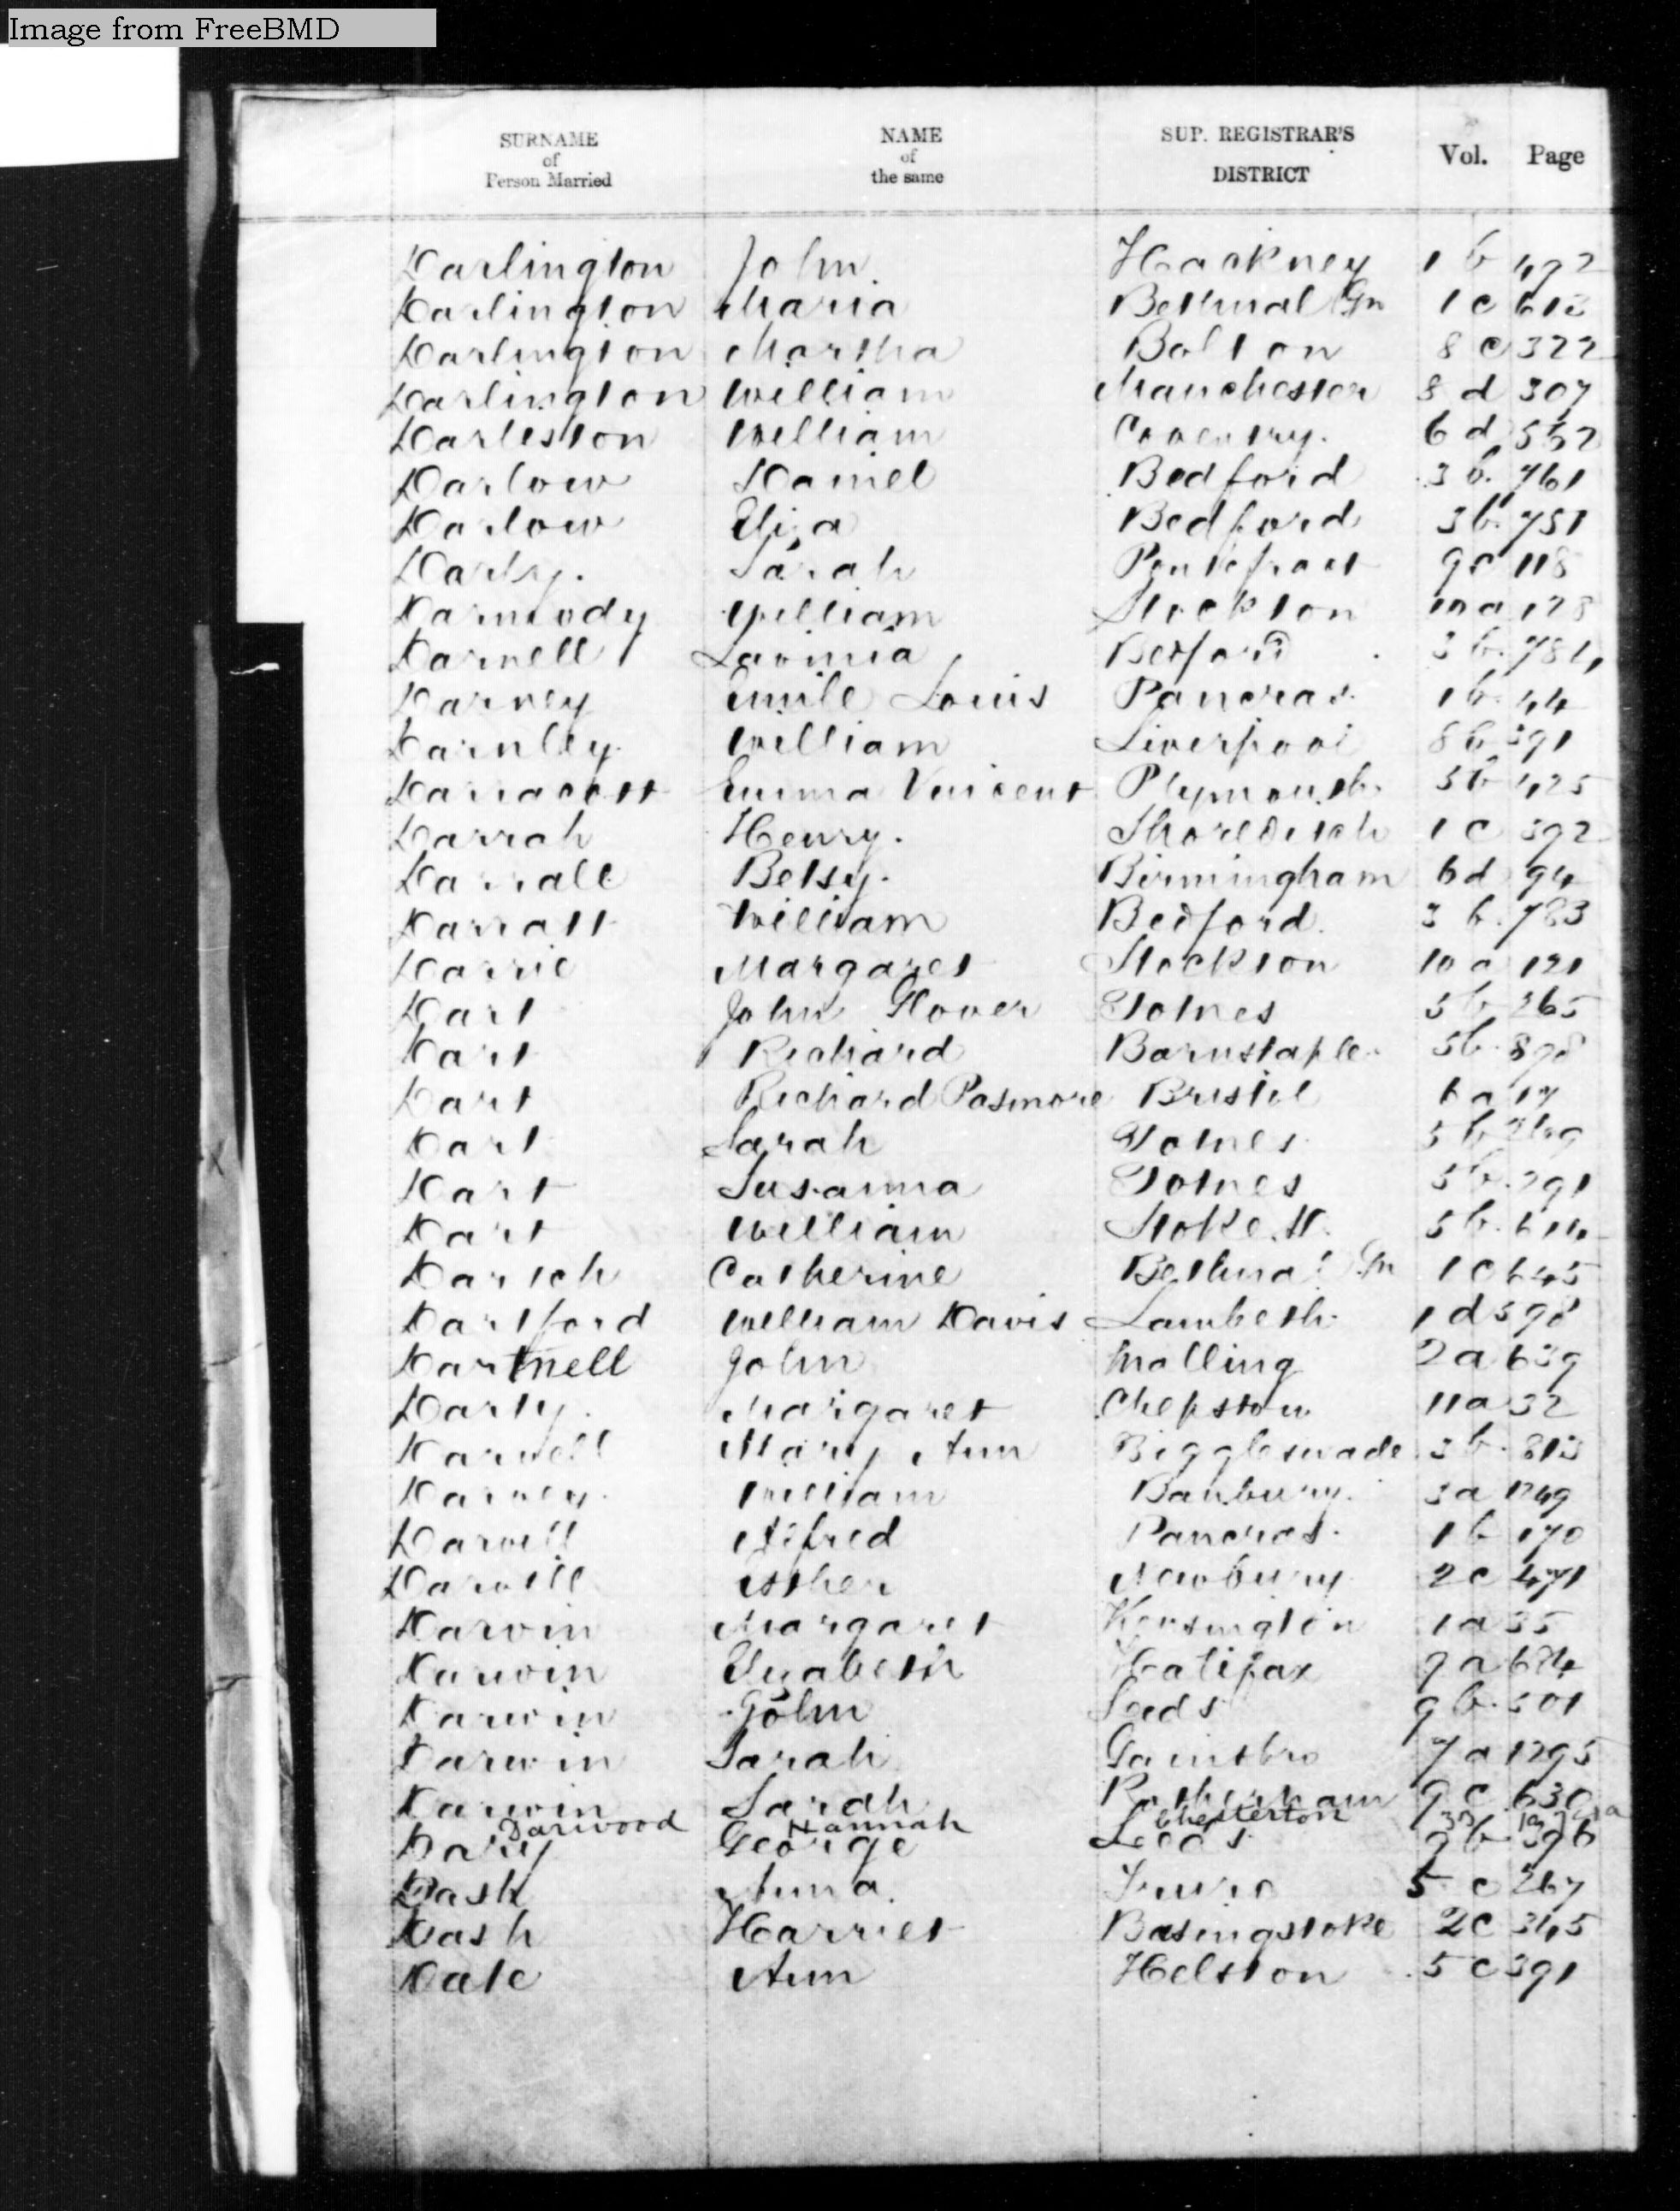 Image from FreeBMD
SURNAME of Person Married NAME of the same SUP. REGISTRAR'S DISTRICT Vol. Page
Darlington John Hackney 1 b 492
Darlington Maria Bethnal Gn 1 c 613
Darlington Martha Bolton 8 c 322
Darlington William Manchester 8 d 307
Darleston William Coventry. 6 d 552
Darlow Daniel Bedford 3 b. 761
Darlow Eliza Bedford 3 b. 751
Darly. Sarah Pontefract 9 c 118
Darmody William Stockton 10 a 128
Darnell Lavinia Bedford 3 b. 784
Darney Emile Louis Pancras. 1 b. 44
Darnley. William Liverpool 8 b 391
Darracott Emma Vincent Plymouth. 5 b 425
Darrah Henry. Shoreditch 1 c 392
Darrall Betsy. Birmingham 6 d 94
Darratt William Bedford. 3 b. 783
Darrie Margaret Stockton 10 a 121
Dart John Glover Totnes 5 b 265
Dart Richard Barnstaple. 5 b. 898
Dart Richard Pasmore Bristol 6 a 17
Dart Sarah Totnes 5 b
Dart Susanna Totnes 5 b. 291
Dart William Stoke. D. 5 b. 614
Dartch Catherine Bethnal Gn 1 c 645
Dartford William Davis Lambeth. 1 d 598
Dartnell John Malling 2 a 639
Darty. Margaret Chepstow 11 a 32
Darvell Mary Ann Biggleswade 3 b. 813
Darvey. William Banbury. 3 a 1249
Darvill Alfred Pancras. 1 b 170
Darvill Esther Newbury 2 c 471
Darvin Margaret Kensington 1 a 35
Darwin Elizabeth Halifax 9 a 684
Darwin John Leeds 9 b. 301
Darwin Sarah Gainsbro 7 a 1295
Darwin Sarah Rotherham 9 c 630
Darwood Hannah Chesterton 3b
Dary George Leeds 9 b. 396
Dash Anna. Truro 5 c 267
Dash Harriet Basingstoke 2 c 345
Date Ann Helston 5 c 391